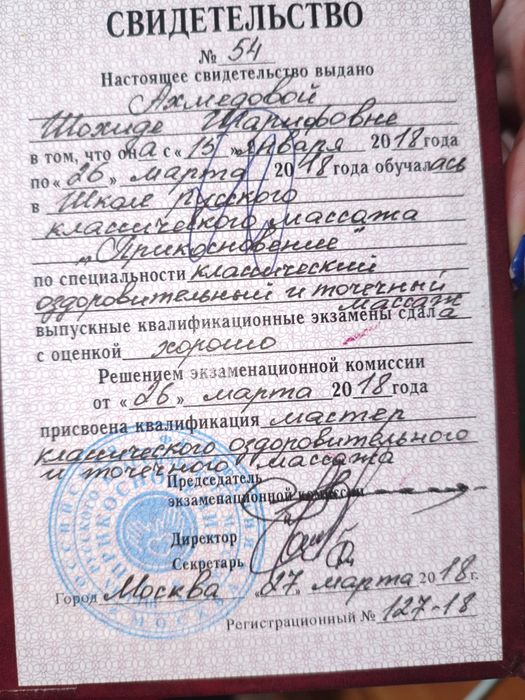 СВИДЕТЕЛЬСТВО
№ 54
Настоящее свидетельство выдано
Ахмедовой
Шохиде Шарифовне
в том, что она с «15» января 2018 года
по «26» марта 2018 года обучалась
в Школе русского
классического массажа
„Прикосновение"
по специальности классический
оздоровительный и точечный
массаж
выпускные квалификационные экзамены сдала
с оценкой хорошо
Решением экзаменационной комиссии
от «26» марта 2018 года
присвоена квалификация мастер
классического оздоровительного
и точечного массажа
Председатель
экзаменационной комиссии
Директор
Секретарь
Город Москва «27» марта 2018 г.
Регистрационный № 127-18